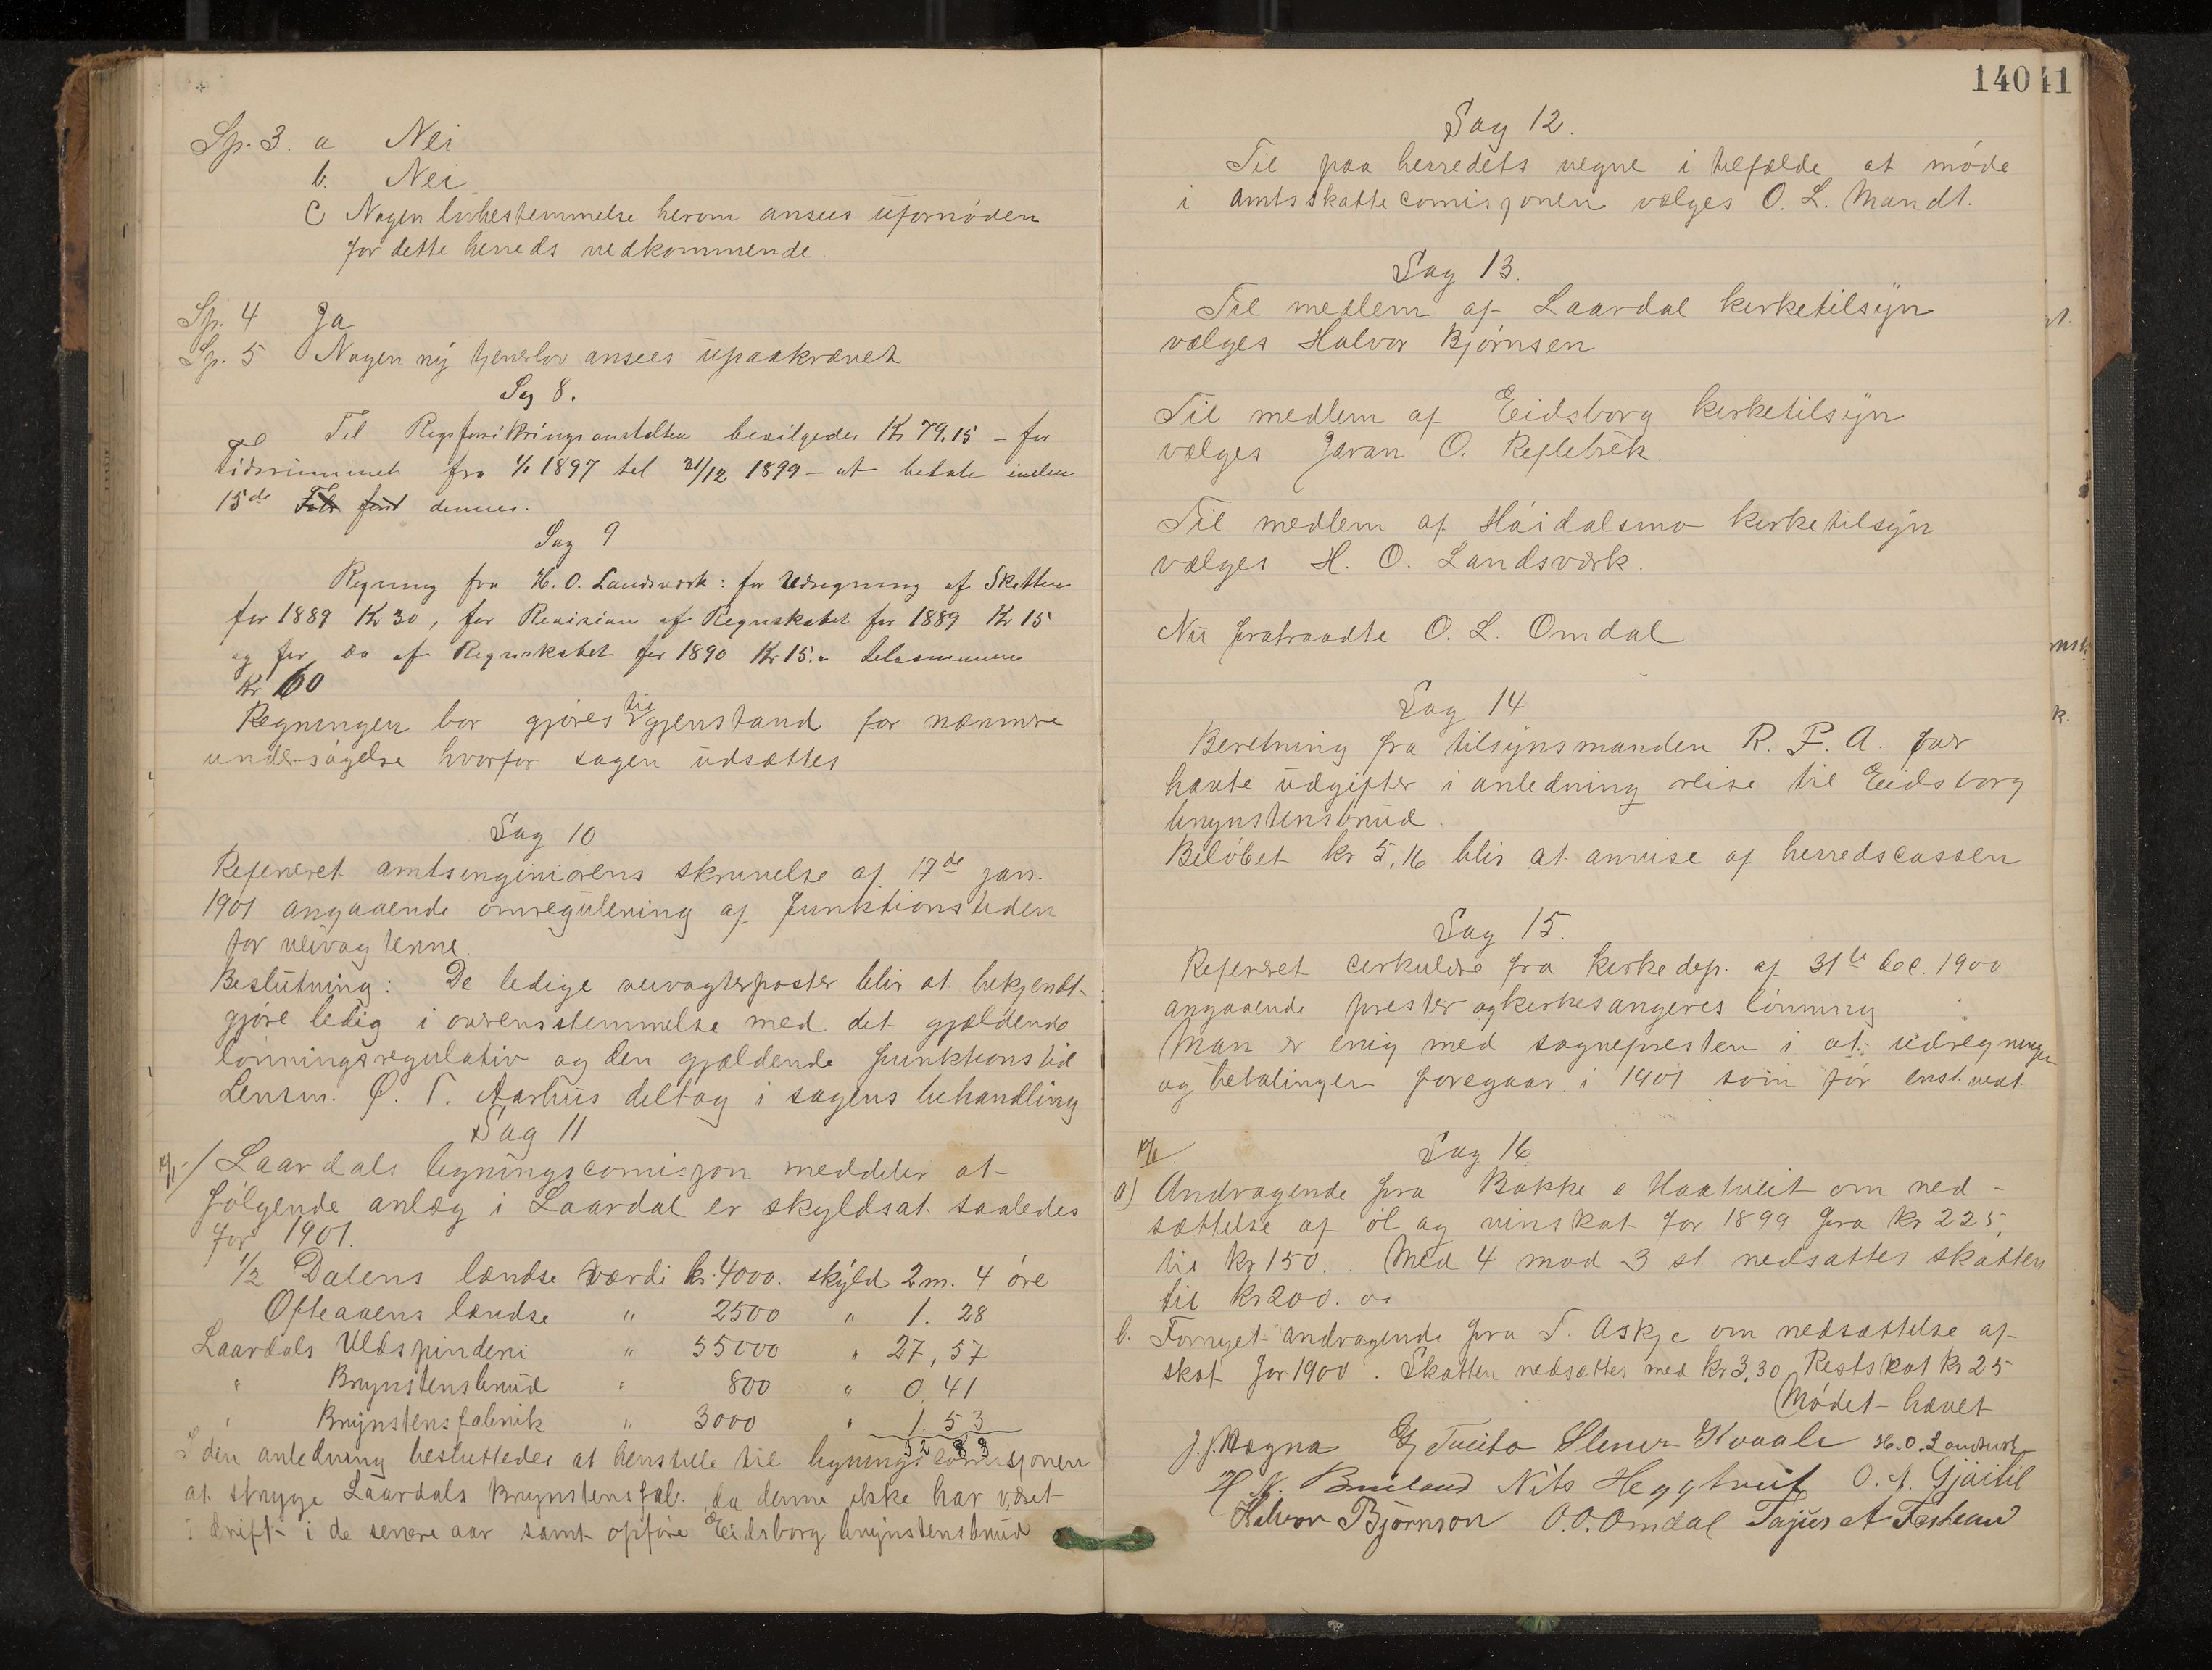 Sp. 3. a Nei
b. Nei
c Nogen lovbestemmelse herom ansees ufornøden
for dette herreds vedkommende.
Sp. 4 Ja
Sp. 5 Nogen ny tjenerlov ansees upaakrævet
Sag 8.
Til Rigsforsikringsanstalten bevilgedes Kr 79.15 – for
Tidsrummet fra 1/1 1897 til 31/12 1899 – at betale inden
15de Febr dennes.
Sag 9
Regning fra H. O. Landsværk: for Udregning af Skatten
for 1889 Kr 30, for Revision af Regnskabet for 1889 Kr 15
og for Do af Regnskabet for 1890 Kr 15.- tilsammen
Kr 60
Regningen bør gjøres til gjenstand for nærmere
undersøgelse hvorfor sagen udsættes
Sag 10
Refereret amtsingeniørens skrivelse af 17de jan.
1901 angaaende omregulering af funktionstiden
for veivogterne.
Beslutning: De ledige veivogterposter blir at bekjendt-
gjøre ledig i overensstemmelse med det gjældende
lønningsregulativ og den gjældende funktionstid
Lensm. Ø. T. Aarhus deltog i sagens behandling
Sag 11
Laardals ligningscomisjon meddeler at
følgende anlæg i Laardal er skyldsat saaledes
for 1901.
1/2 Dalens lændse værdi kr. 4000. skyld 2 m. 4 øre
Ofteaaens lændse " 2500 " 1. 28
Laardals Uldspinderi " 55000 " 27,57
" Brynstensbrud " 800 " 0,41
" Brynstensfabrik " 3000 " 1.53
32 83
I den anledning besluttedes at henstille til ligningscomisjonen
at stryge Laardals Brynstensfab. da denne ikke har været
i drift i de senere aar samt opføre Eidsborg brynstensbrud
140 41
Sag 12.
Til paa herredets vegne i tilfælde at møde
i amtsskattecomisjonen vælges O. L. Mandt.
Sag 13.
Til medlem af Laardal kirketilsyn
vælges Halvor Bjørnsen
Til medlem af Eidsborg kirketilsyn
vælges Jøran O.
Til medlem af Høidalsmo kirketilsyn
vælges H. O. Landsværk.
Nu fratraadte O. L. Omdal
Sag 14
Beretning fra tilsynsmanden R. F. A. for
havte udgifter i anledning reise til Eidsborg
brynstensbrud.
Beløbet kr 5,16 blir at anvise af herredscassen
Sag 15.
Refereret cirkulære fra Kirkedep. af 31te dec. 1900
angaaende prester og kirkesangeres lønning
Man er enig med sognepresten i at udregningen
og betalingen foregaar i 1901 som før enst. vedt.
Sag 16
a) Andragende fra Bakke & Haatveit om ned-
sættelse af øl og vinskat for 1899 fra kr 225,
til kr 150. Med 4 mod 3 st nedsattes skatten
til kr 200. oo
b. Fornyet andragende fra T. Askje om nedsættelse af
skat for 1900. Skatten nedsættes med kr 3,30 Restskat kr 25
Mødet hævet
Stener Kvaale H. O. Landsværk
Nils Heggtveit
Halvor Bjørnson O. O. Omdal